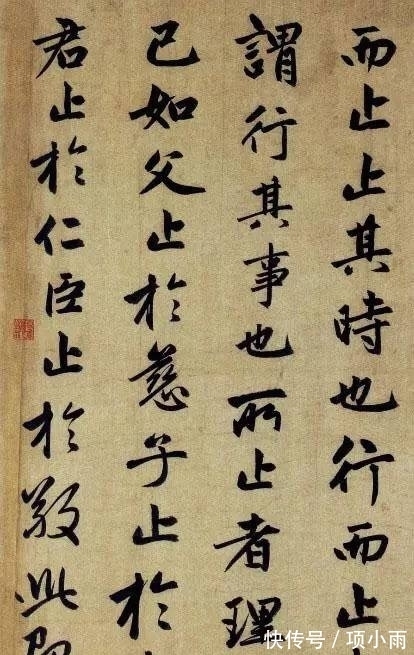 而止止其時也行而止
謂行其事也所止者理
已如父止於慈子止於
君止於仁臣止於敬此
快传号／项小雨